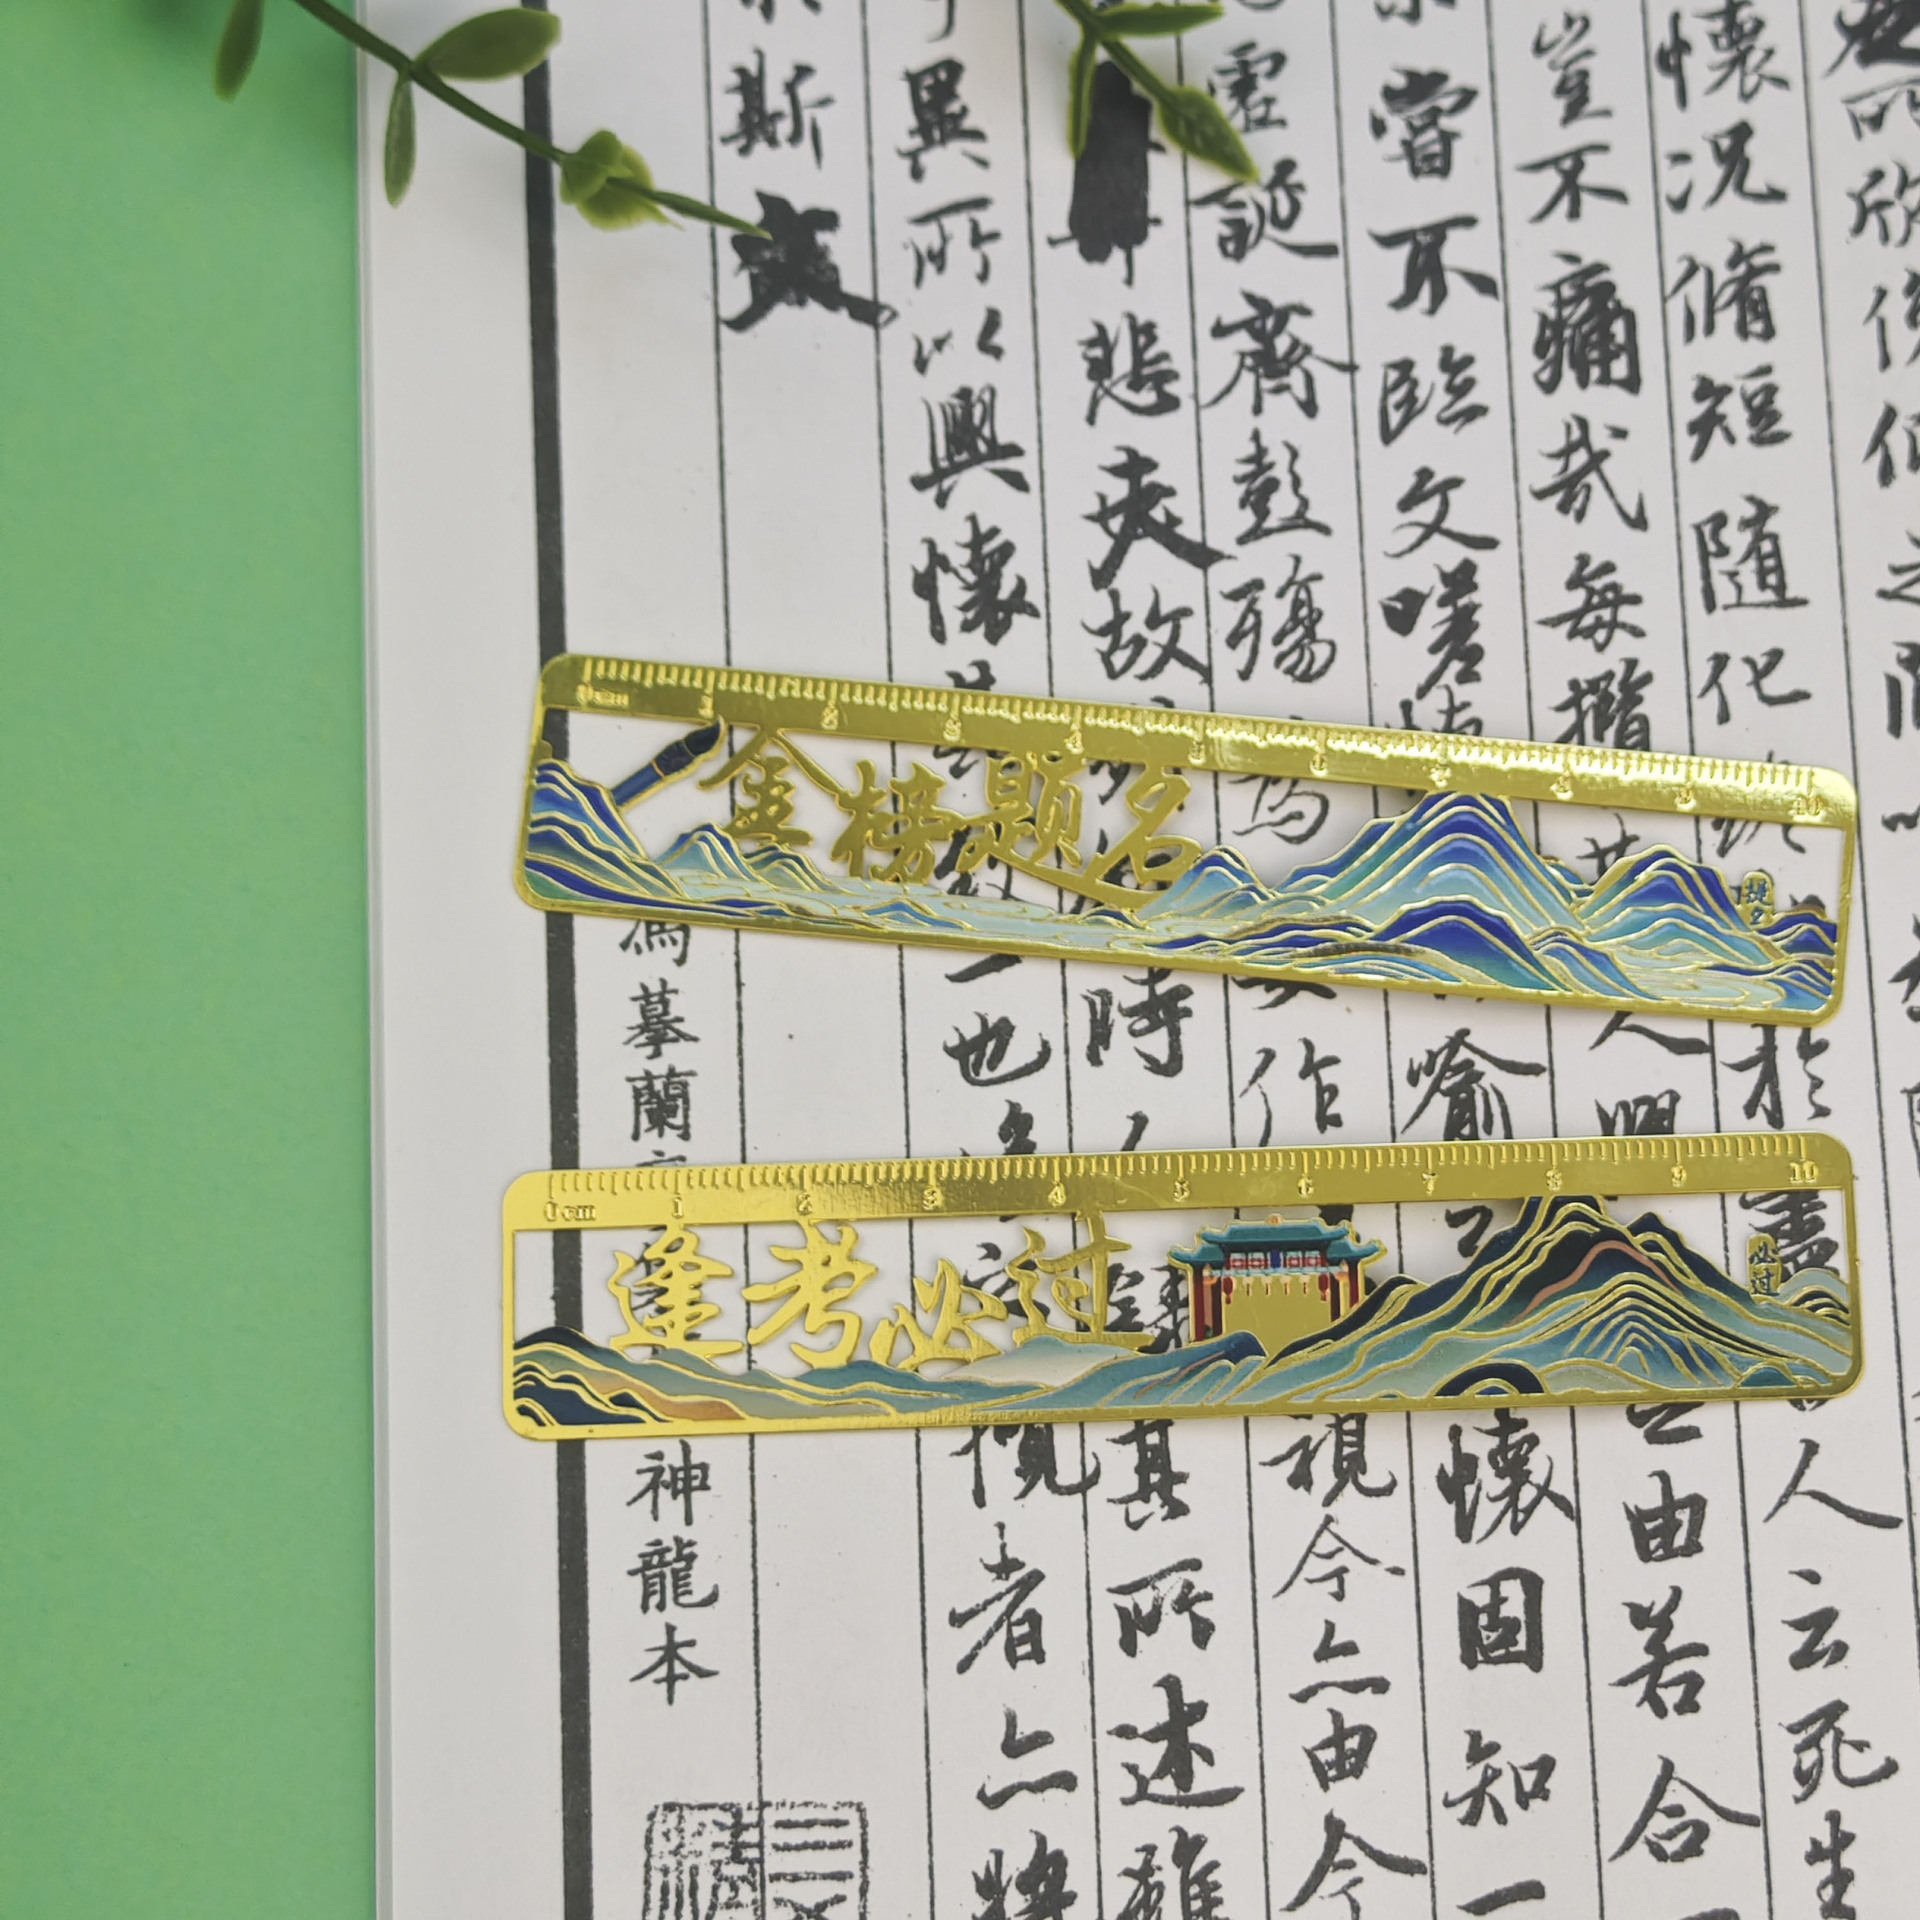 0 cm 1 2 3 4 5 6 7 8 9 10
金榜题名
提名
0 cm 1 2 3 4 5 6 7 8 9 10
逢考必过
必过
所欣俛仰之間
懷况脩短随化
於盡
人云死生
豈不痛哉每攬
人興
由若合一
甞不臨文嗟
喻
懷固知一
虛誕齊彭殤為
作
視今亦由今
悲夫故
時人
其所述雖
異所以興懷其
一也
攬者亦將
斯文
馮摹蘭
神龍本